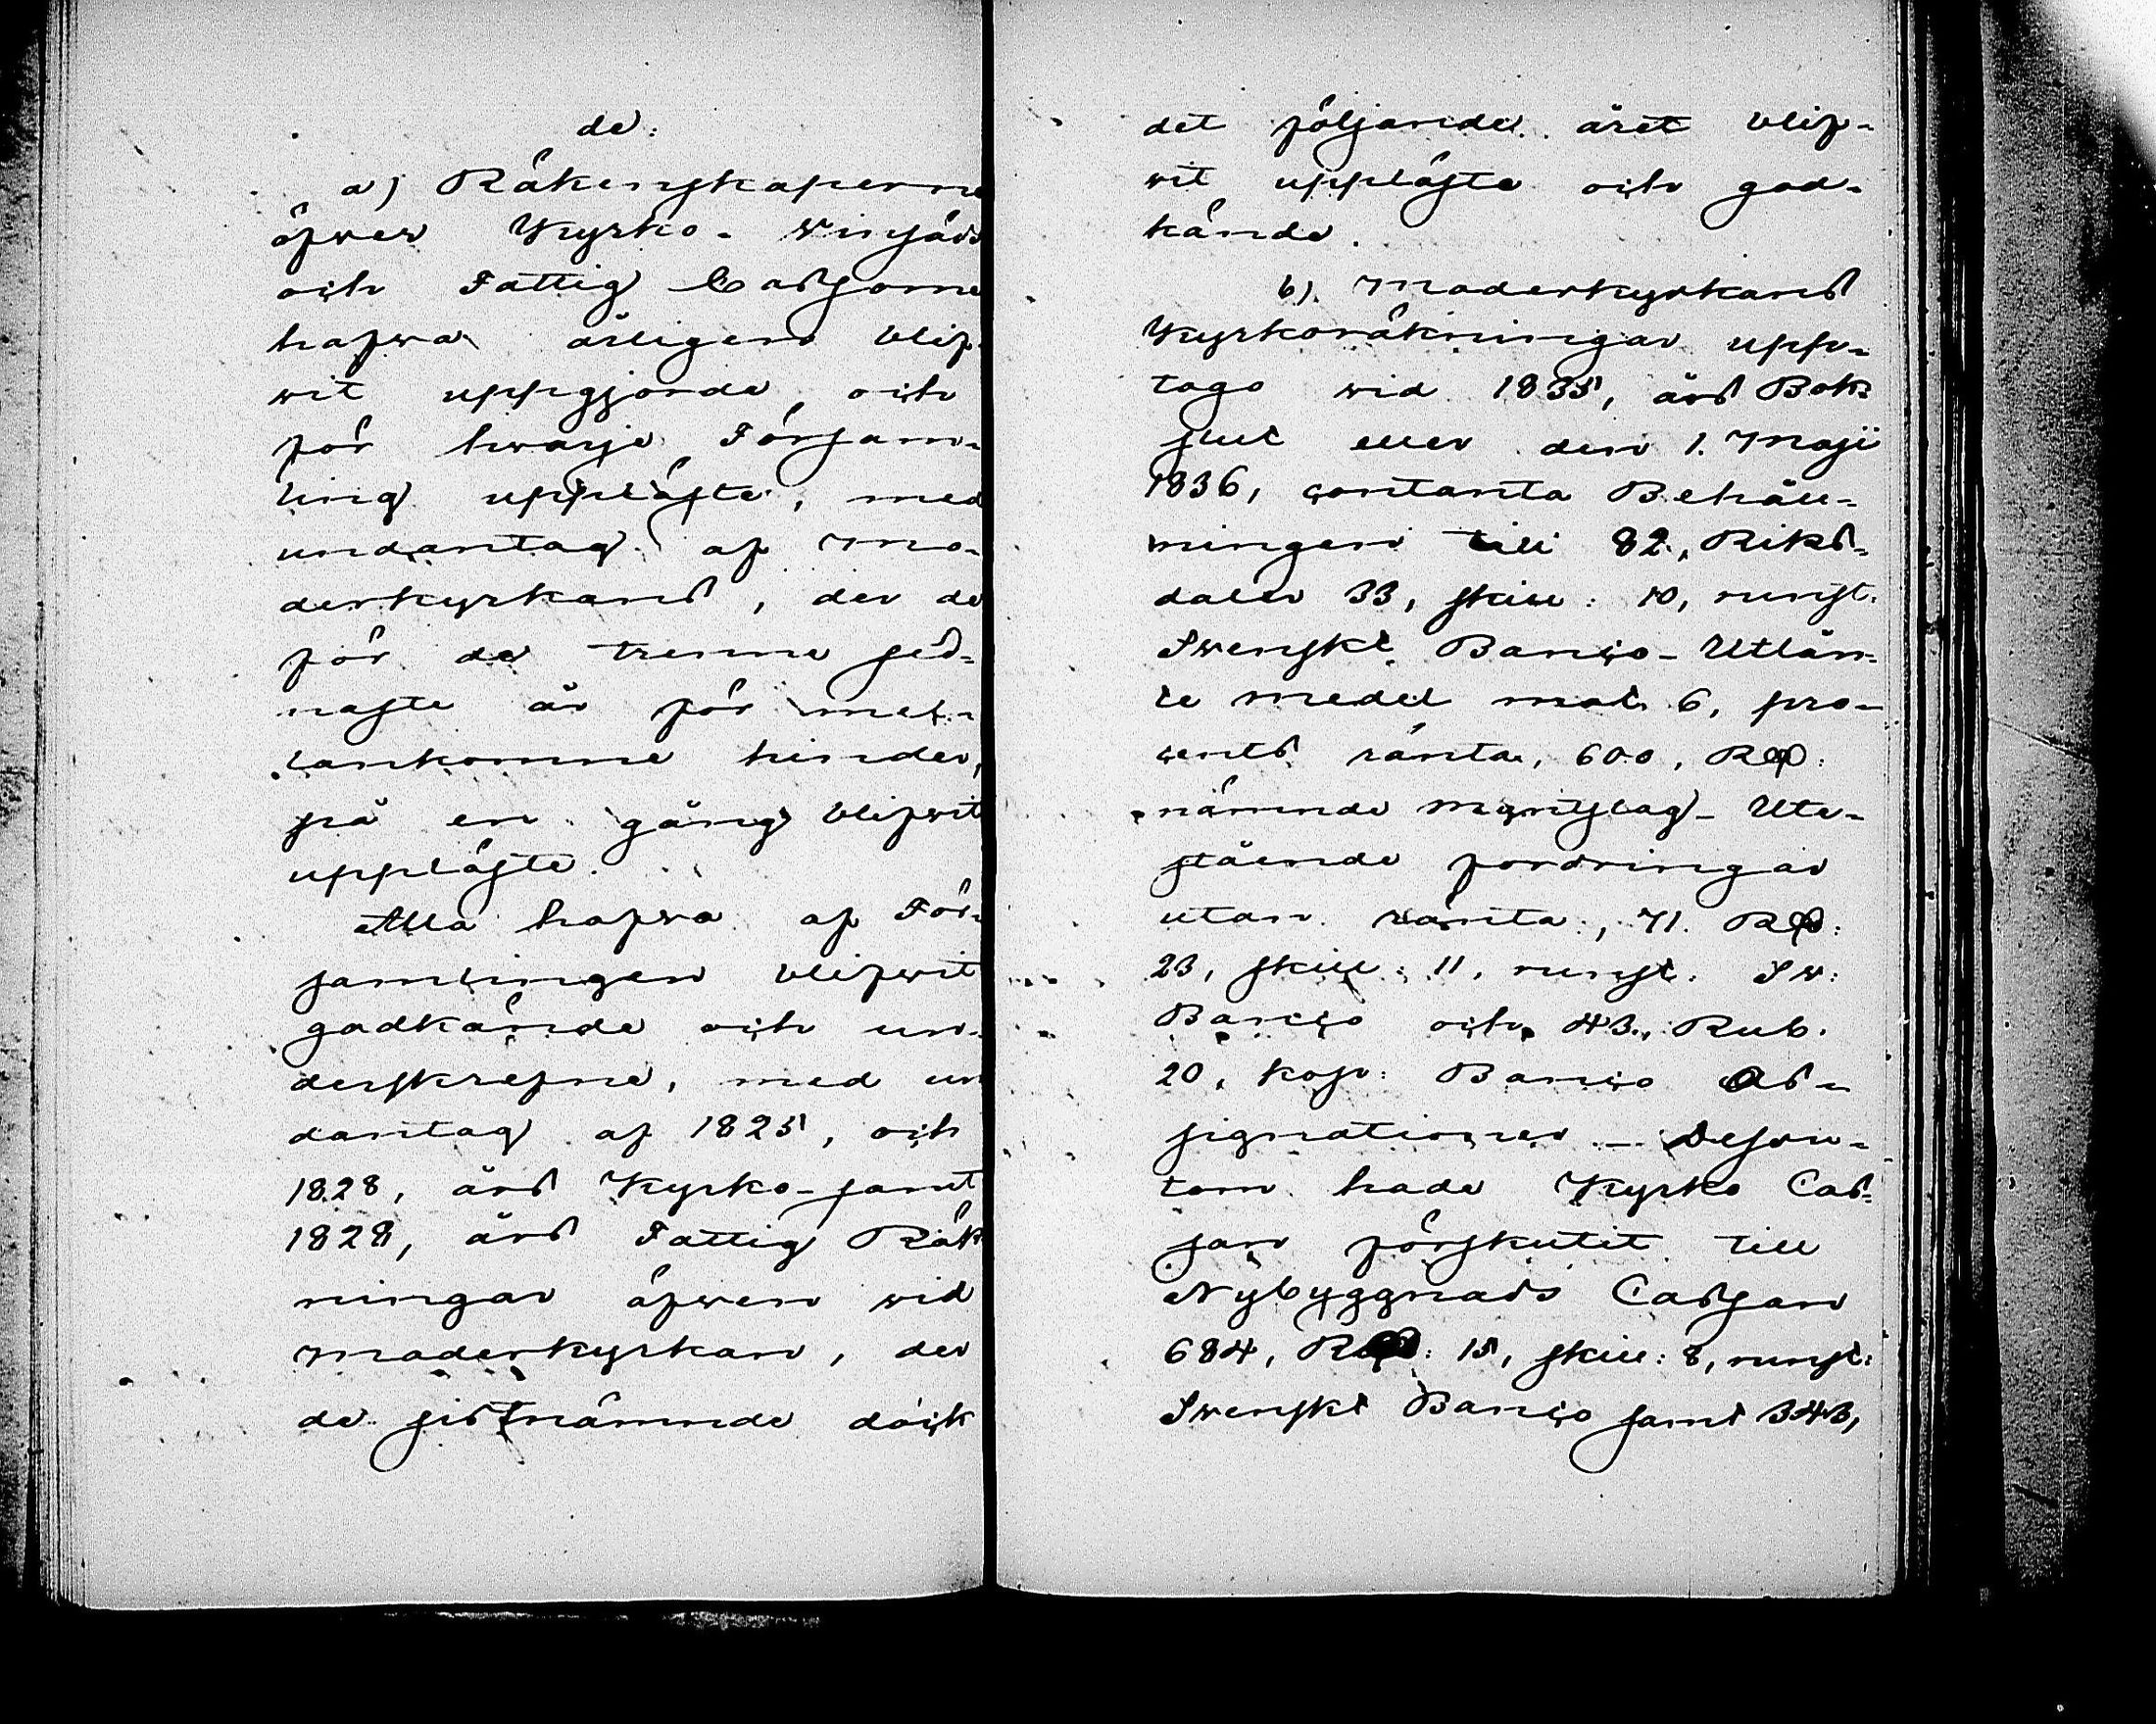 de:
a) Räkenskaperne
öfwer Kyrko- Winjäds
och Fattig Cassorne
hafwa årligen blif-
wit uppgjorde, och
för hwarje Försam-
ling uppläste, med
undantag af Mo-
derkyrkans, der de
för de trenne sed-
naste år för mel-
lankomne hinder,
på en gång blifwit
uppläste.
Alla hafwa af För-
samlingen blifwit
godkände och un-
derskrefne, med un
dantag af 1825, och
1828, års Kyrko- samt
1828, års Fattig Räk
ningar äfwen wid
Moderkyrkan, der
de sistnämnde dock
det följande året blif-
wit uppläste och god-
kände.
b). Moderkyrkans
Kyrkoräkningar upp-
togo wid 1835, års Bok-
slut eller den 1. Maji
1836, contanta Behåll-
ningen till 82, Riks-
daler 33, skill: 10, runst.
Swenskt Banco - Utlån-
te medel mot 6, pro-
cents ränta, 600, Rd:
nämnde myntslag - Ute-
stående fordringar
utan ränta, 71. Rd:
23, skill: 11, runst. Sw:
Banco och 43, Rub.
20, kop: Banco As-
signationer - Dessu-
tom hade Kyrko Cas-
san förskutit till
Nybyggnads Cassan
684, Rd: 15, skill: 8, runst:
Swenskt Banco samt 343,